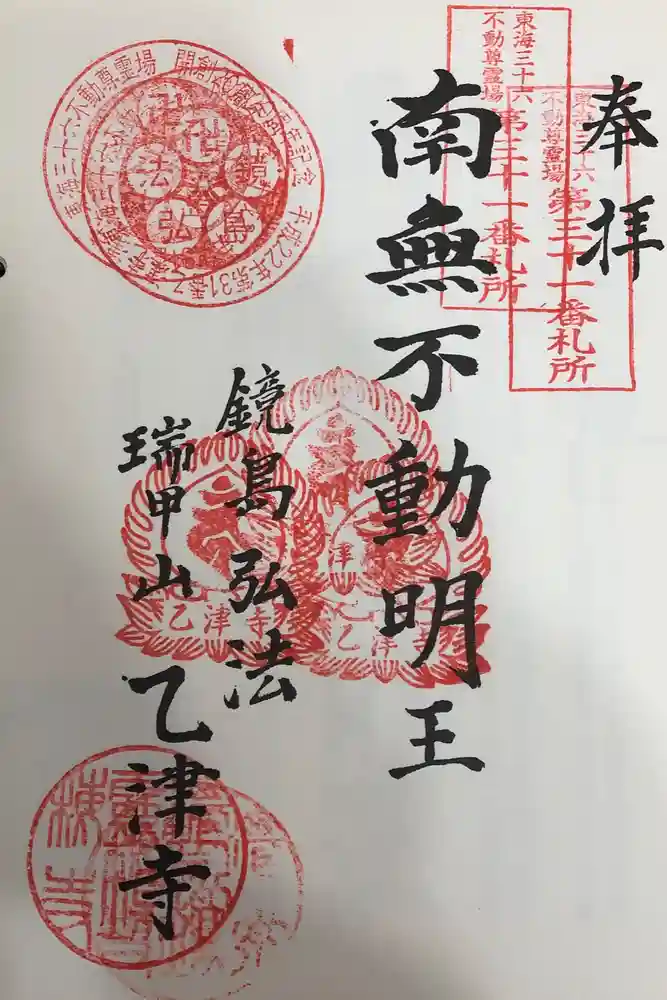 奉拝
東海三十六
不動尊霊場
第三十一番札所
東海三十六
不動尊霊場
第三十一番札所
南無不動明王
鏡島弘法
瑞甲山
乙津寺
東海三十六不動尊霊場 開創 記念 平成22年第31番乙津寺
鏡島弘法
乙津寺
乙津寺
梅寺